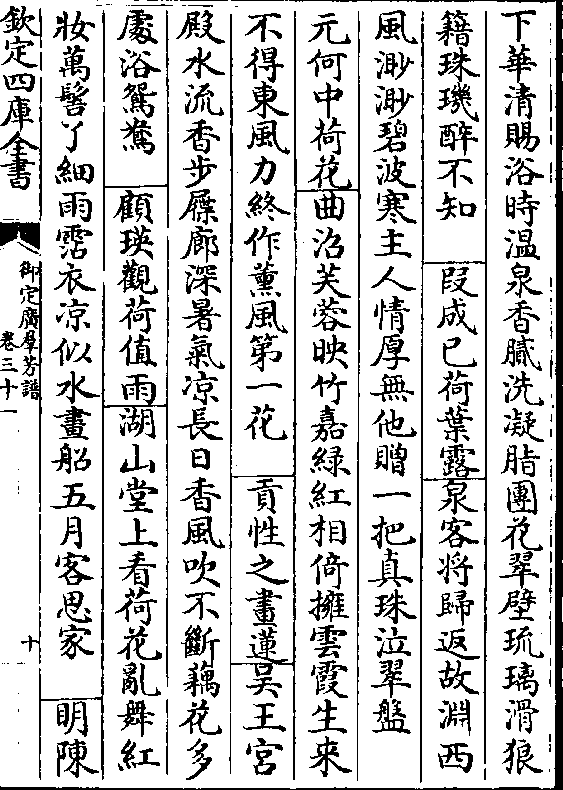 下華清賜浴時温泉香膩洗凝脂團花翠壁琉璃滑狼
籍珠璣醉不知　段成已荷葉露泉客將歸返故淵西
風渺渺碧波寒主人情厚無他贈一把真珠泣翠盤
元何中荷花曲沼芙蓉映竹嘉緑紅相倚擁雲霞生來
不得東風力終作薰風第一花　貢性之畫蓮吴王宮
殿水流香步屧廊深暑氣凉長日香風吹不斷藕花多
處浴鴛鴦　顧瑛觀荷值雨湖山堂上看荷花亂舞紅
妝萬髻丫細雨霑衣凉似水畫船五月客思家　明陳
欽定四庫全書
御定廣羣芳譜
卷三十一
十